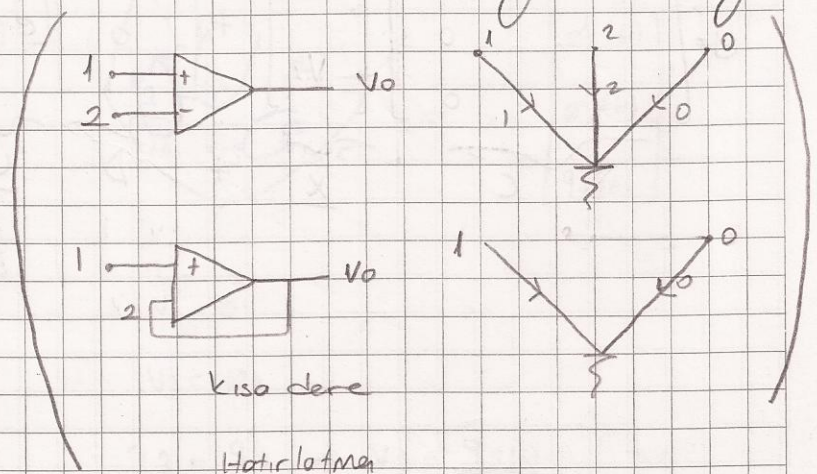 1 + Vo
2 -
1 2 0
1 2 0
1 + Vo
2
1 0
0
kısa devre
Hatırlatma